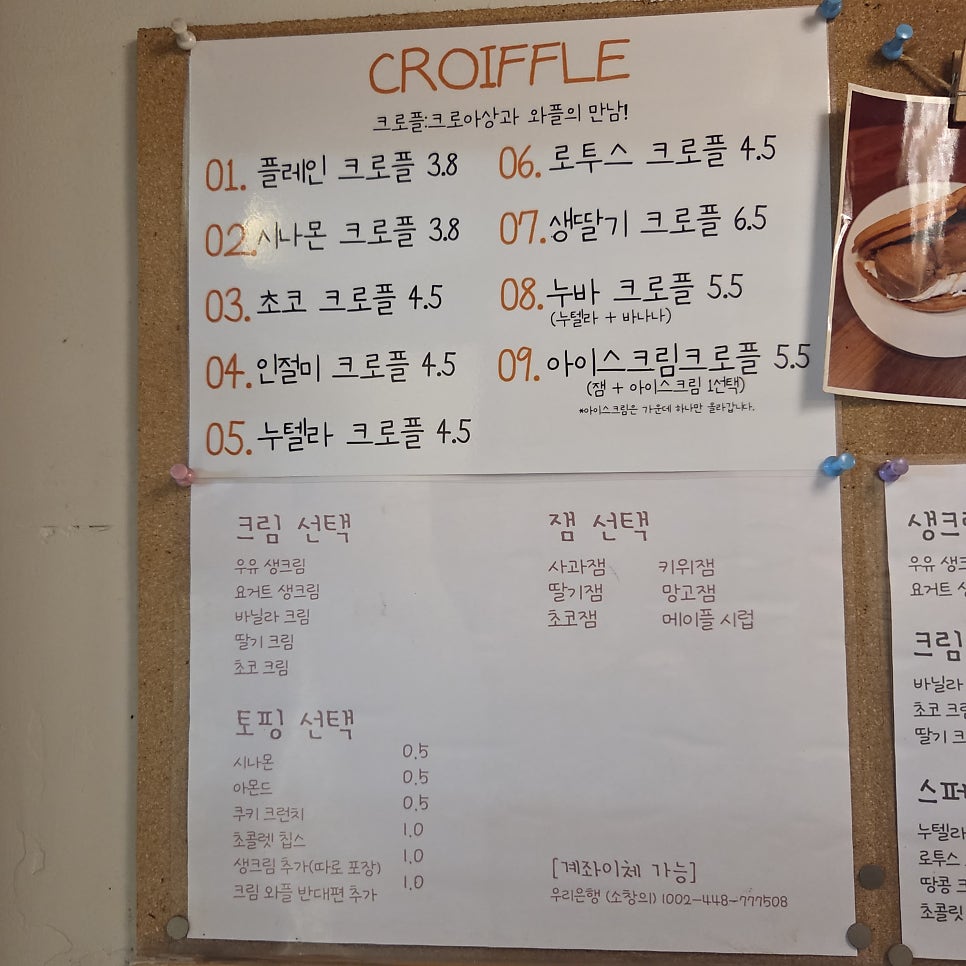 CROIFFLE
크로플:크로아상과 와플의 만남!
01. 플레인 크로플 3.8
02. 시나몬 크로플 3.8
03. 초코 크로플 4.5
04. 인절미 크로플 4.5
05. 누텔라 크로플 4.5
06. 로투스 크로플 4.5
07. 생딸기 크로플 6.5
08. 누바 크로플 5.5
(누텔라 + 바나나)
09. 아이스크림크로플 5.5
(잼 + 아이스크림 1선택)
*아이스크림은 가운데 하나만 올라갑니다.
크림 선택
우유 생크림
요거트 생크림
바닐라 크림
딸기 크림
초코 크림
잼 선택
사과잼 키위잼
딸기잼 망고잼
초코잼 메이플 시럽
토핑 선택
시나몬 0.5
아몬드 0.5
쿠키 크런치 0.5
초콜렛 칩스 1.0
생크림 추가(따로 포장) 1.0
크림 와플 반대편 추가 1.0
[계좌이체 가능]
우리은행 (소창의) 1002-448-777508
생크
우유 생크
요거트
크림
바닐라
초코 크
딸기 크
스퍼
누텔라
로투스
땅콩
초콜릿